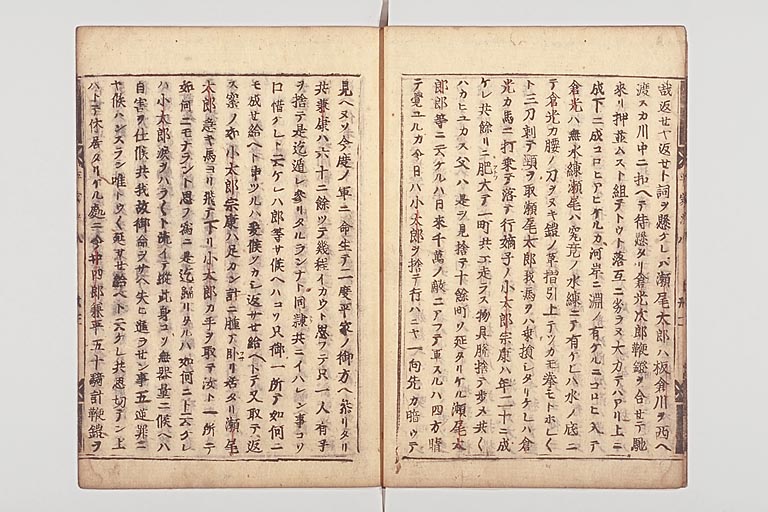 哉返セヤ返セト詞ヲ懸ケレハ瀬尾太郎ハ板倉川ヲ西ヘ
渡スカ川中ニ扣ヘテ待懸タリ倉光次郎鞭鐙ヲ合セテ馳
来リ押並ムスト組テトウト落互ニ劣ラヌ大力ニテハアリ上ニ
成下ニ成コロヒアヒケルカ河岸ニ淵ノ有ケルニコロヒ入テ
倉光ハ無水練瀬尾ハ究竟ノ水練ニテ有ケレハ水ノ底ニ
テ倉光カ腰ノ刀ヲヌキ鎧ノ草摺引上テツカモ拳モトホレ
ト三刀刺テ頸ヲ取瀬尾太郎我馬ヲハ乗損シタリケレハ倉
光カ馬ニ打乗テ落テ行嫡子ノ小太郎宗康ハ年二十ニ成
ケレ共餘リニ肥太テ一町共エ走ラス物具脱捨テ歩メ共
ハカヒユカス父ハ是ヲ見捨テ十餘町ソ延タリケル瀬尾太
郎郎等ニ云ケルハ日来千萬ノ敵ニアフテ軍スルハ四方晴
テ覚ユルカ今日ハ小太郎ヲ捨テ行ハニヤ一向先カ暗ウテ
見ヘヌソ今度ノ軍ニ命生テ二度平家ノ御方ヘ参リタリ
共兼康ハ六十ニ餘ツテ幾程イカウト思フテ只一人有子
ヲ捨テ是迄遁レ参リタルランナト同隷共ニイハレン事コソ
口惜ケレト云ケレハ郎等サ候ヘハコソ只御一所テ如何ニ
モ成セ給ヘト申ツルハ爰候ソカシ返サセ給ヘトテ又取テ返
ス案ノ如小太郎宗康ハ足カン計ニ腫テ臥リ居タリ瀬尾
太郎急キ馬ヨリ飛テ下リ小太郎カ手ヲ取テ汝ト一所ニテ
如何ニモナラント思フ為ニ是迄歸リタルハ如何ニト云ケレ
ハ小太郎涙ヲハラハラト流イテ縦此身コソ無器量ニ候ヘハ
自害ヲ仕候共我故御命ヲサヘ失ヒ進ラセン事五逆罪ニ
ヤ候ハンスラン唯トウトウ延サセ給ヘト云ケレ共思切テン上
ハトテ休居タリケル處ニ今井四郎兼平五十騎計鞭鐙ヲ